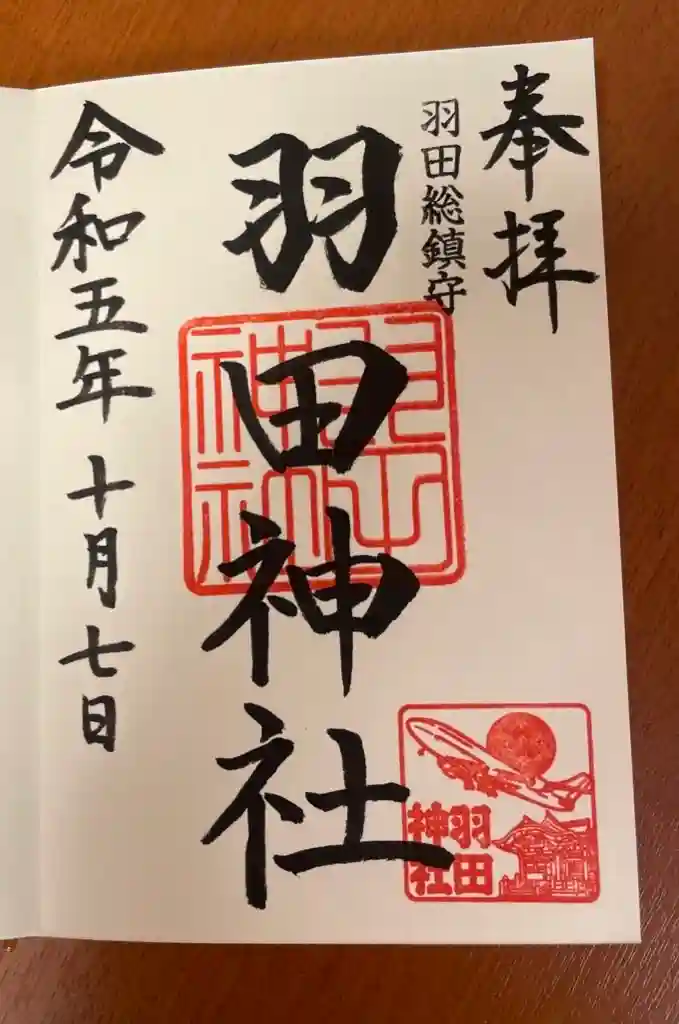 奉拝
羽田総鎮守
羽田神社
羽田神社
羽田
神社
令和五年十月七日